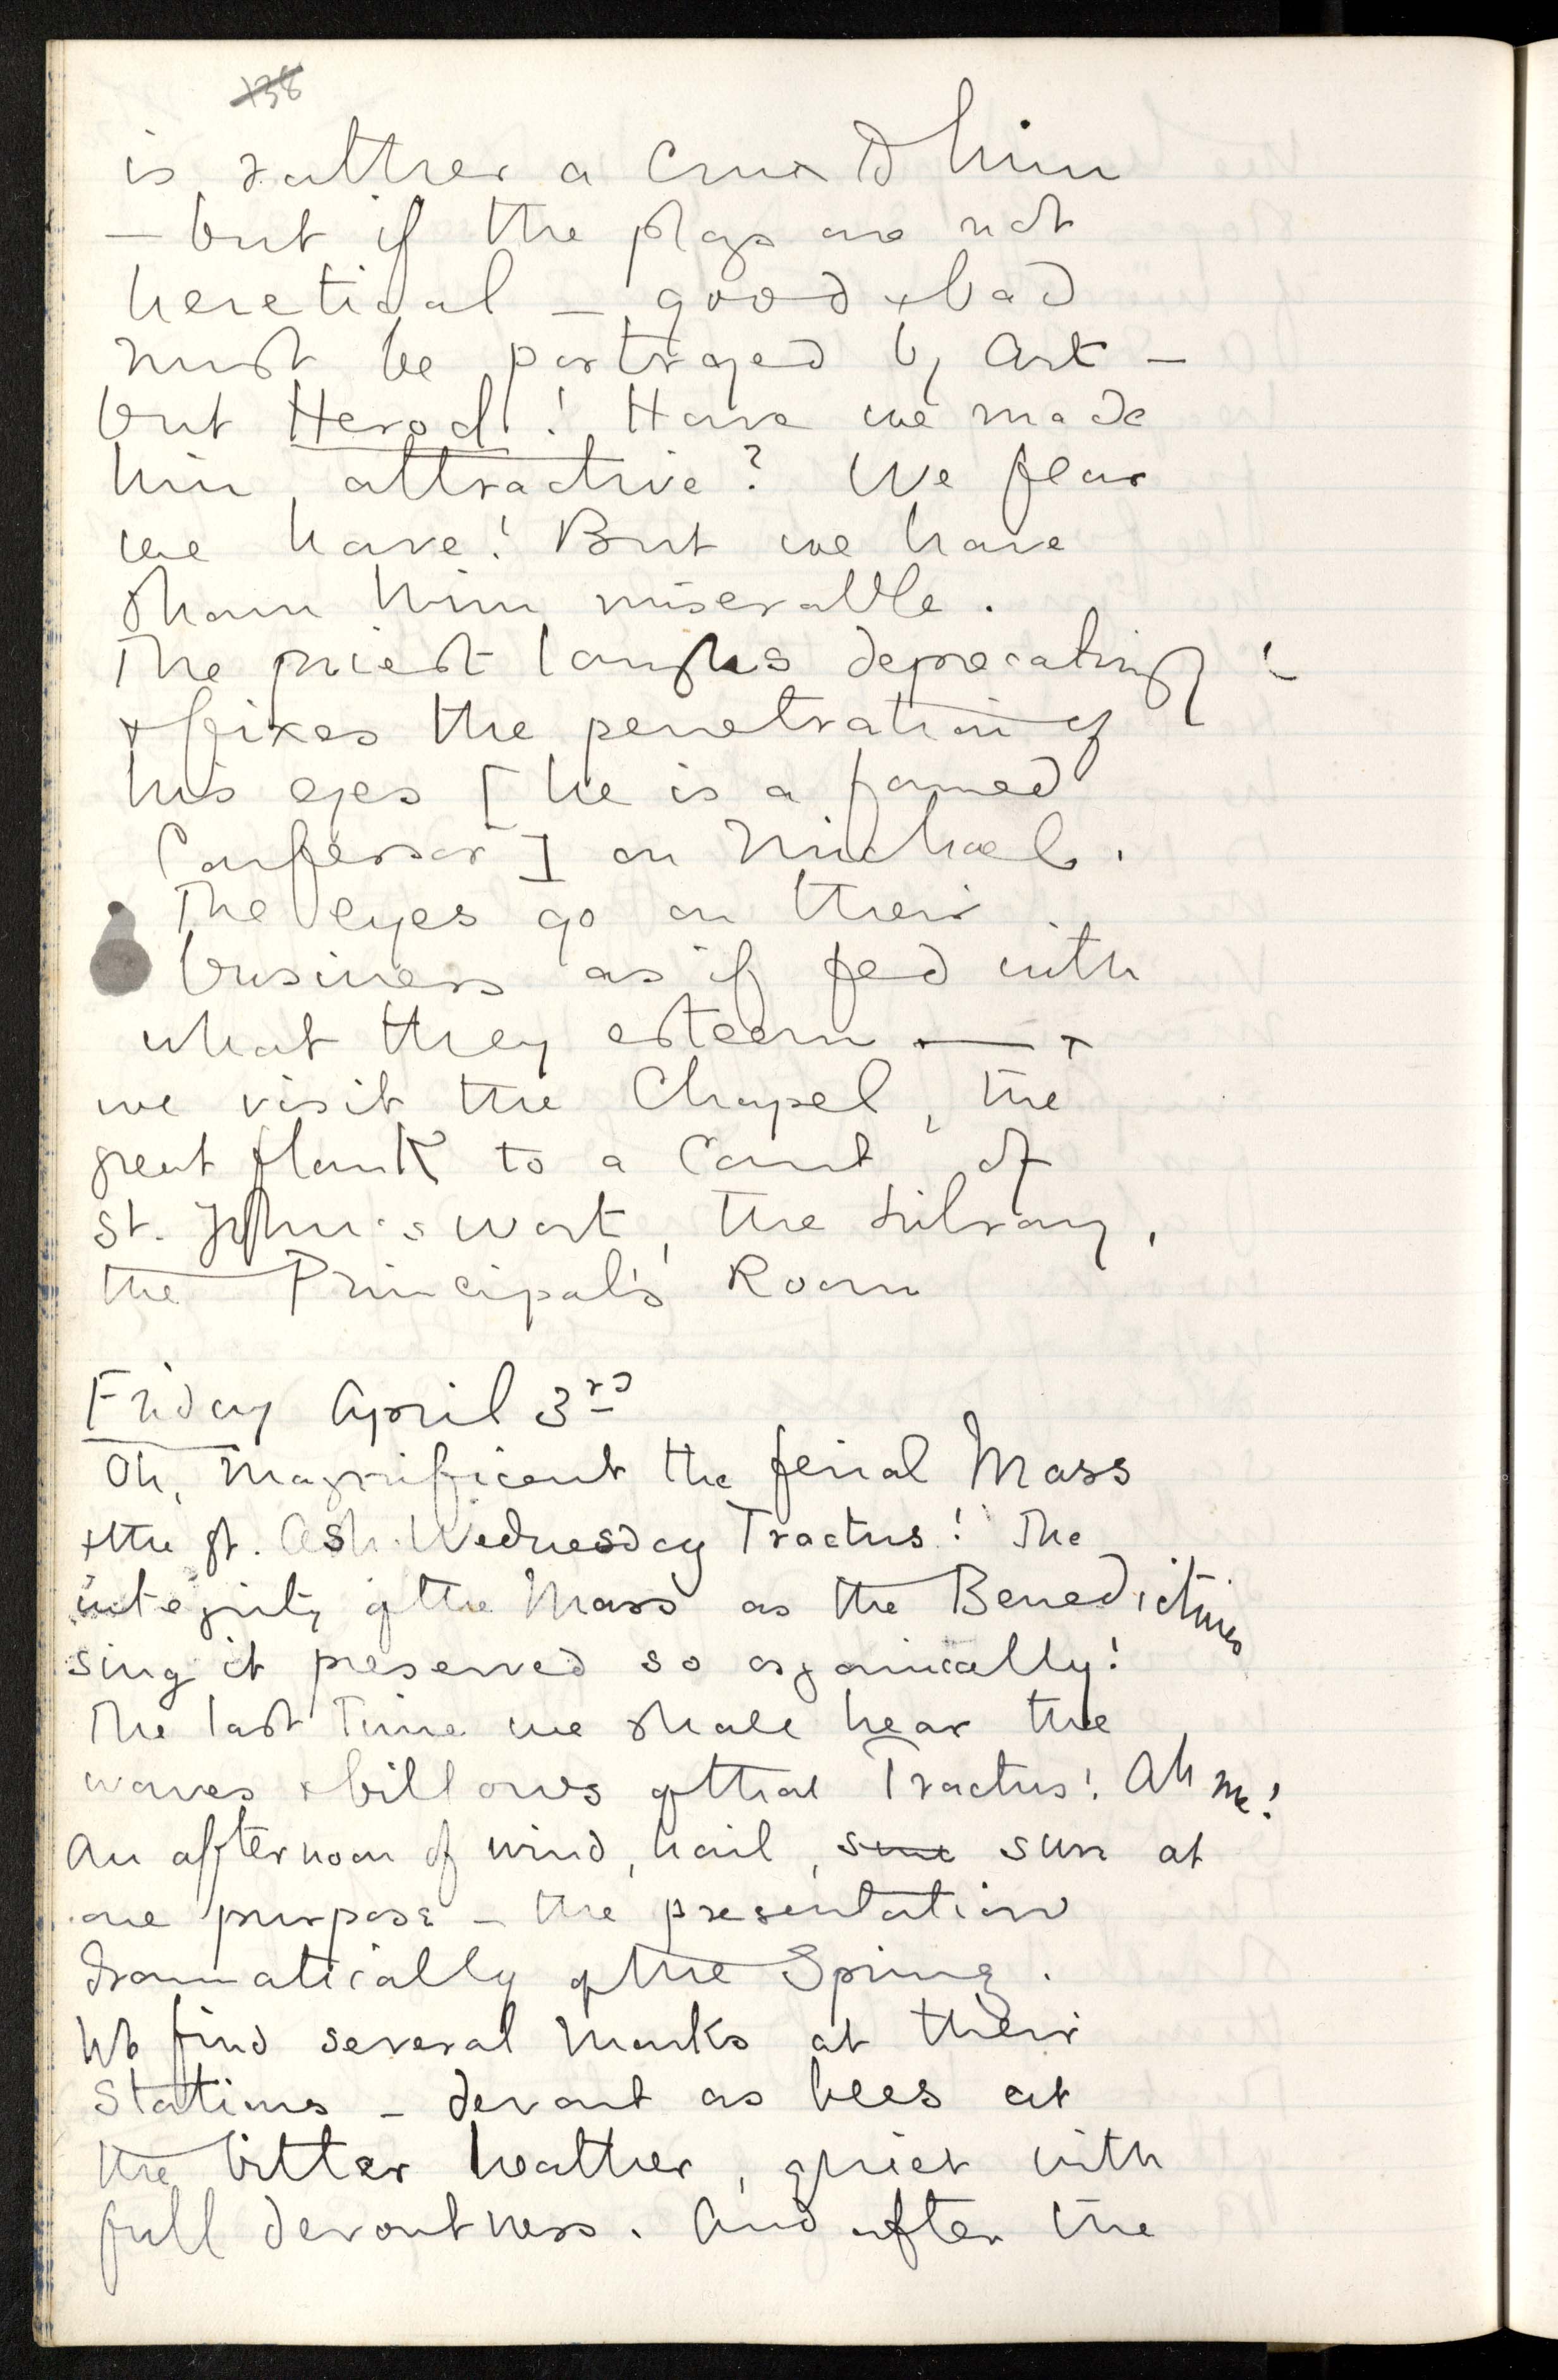 138
is rather a crux to him
— but if the plays are not
heretical — good & bad
must be portrayed by Art —
but Herod! Have we made
him attractive? We fear
we have! But we have
shown him miserable.
The priest laughs deprecatingly
& fixes the penetration of
his eyes [he is a famed
Confessor] on Michael.
The eyes go on their
business as if fed with
what they esteem —
we visit the Chapel, the
great flank to a Court of
St. John's wort, the Library,
the Principal's Room
Friday April 3rd
Oh, magnificent the ferial Mass
& the gt. Ash. Wednesday Tractus! The
integrity of the Mass as the Benedictines
sing it preserved so organically!
The last time we shall hear the
waves & billows of that Tractus! Ah me!
An afternoon of wind, hail, sun at
one purpose — the presentation
dramatically of the Spring.
We find several Monks at their
Stations — devout as bees at
the bitter heather, quiet with
full devoutness. And after the